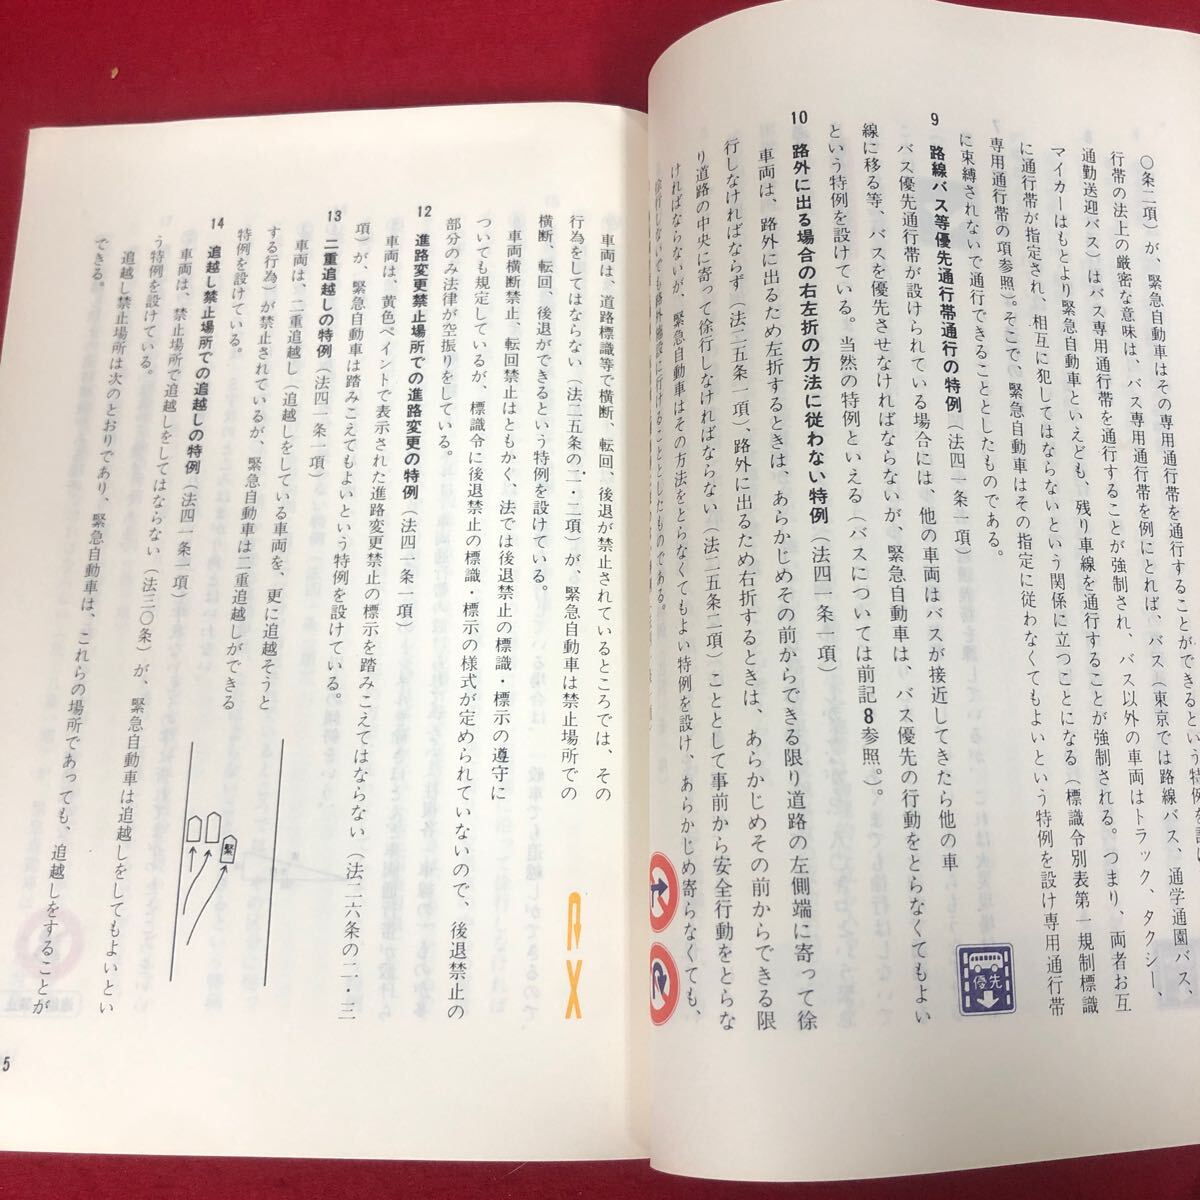 〇条二項）が、緊急自動車はその専用通行帯を通行することができるという特例を設
行帯の法上の厳密な意味は、バス専用通行帯を例にとれば、バス（東京では路線バス、通学通園バス、
通勤送迎バス）はバス専用通行帯を通行することが強制され、バス以外の車両はトラック、タクシー、
マイカーはもとより緊急自動車といえども、残り車線を通行することが強制される。つまり、両者お互
に通行帯が指定され、相互に犯してはならないという関係に立つことになる（標識令別表第一規制標識
専用通行帯の項参照）。そこで、緊急自動車はその指定に従わなくてもよいという特例を設け専用通行帯
に束縛されないで通行できることとしたものである。
9 路線バス等優先通行帯通行の特例（法四一条一項）
バス優先通行帯が設けられている場合には、他の車両はバスが接近してきたら他の車
線に移る等、バスを優先させなければならないが、緊急自動車は、バス優先の行動をとらなくてもよい
という特例を設けている。当然の特例といえる（バスについては前記8参照。）。
優先
10 路外に出る場合の右左折の方法に従わない特例（法四一条一項）
車両は、路外に出るため左折するときは、あらかじめその前からできる限り道路の左側端に寄って徐
行しなければならず（法二五条一項）、路外に出るため右折するときは、あらかじめその前からできる限
り道路の中央に寄って徐行しなければならない（法二五条二項）こととして事前から安全行動をとらな
ければならないが、緊急自動車はその方法をとらなくてもよい特例を設け、あらかじめ寄らなくても、
徐行しないでも路外施設に行けることとしたものである。
車両は、道路標識等で横断、転回、後退が禁止されているところでは、その
行為をしてはならない（法二五条の二・二項）が、緊急自動車は禁止場所での
横断、転回、後退ができるという特例を設けている。
車両横断禁止、転回禁止はともかく、法では後退禁止の標識・標示の遵守に
ついても規定しているが、標識令に後退禁止の標識・標示の様式が定められていないので、後退禁止の
部分のみ法律が空振りをしている。
12 進路変更禁止場所での進路変更の特例（法四一条一項）
車両は、黄色ペイントで表示された進路変更禁止の標示を踏みこえてはならない（法二六条の二・三
項）が、緊急自動車は踏みこえてもよいという特例を設けている。
13 二重追越しの特例（法四一条一項）
車両は、二重追越し（追越しをしている車両を、更に追越そうと
する行為）が禁止されているが、緊急自動車は二重追越しができる
特例を設けている。
緊
14 追越し禁止場所での追越しの特例（法四一条一項）
車両は、禁止場所で追越しをしてはならない（法三〇条）が、緊急自動車は追越しをしてもよいとい
う特例を設けている。
追越し禁止場所は次のとおりであり、緊急自動車は、これらの場所であっても、追越しをすることが
できる。
5